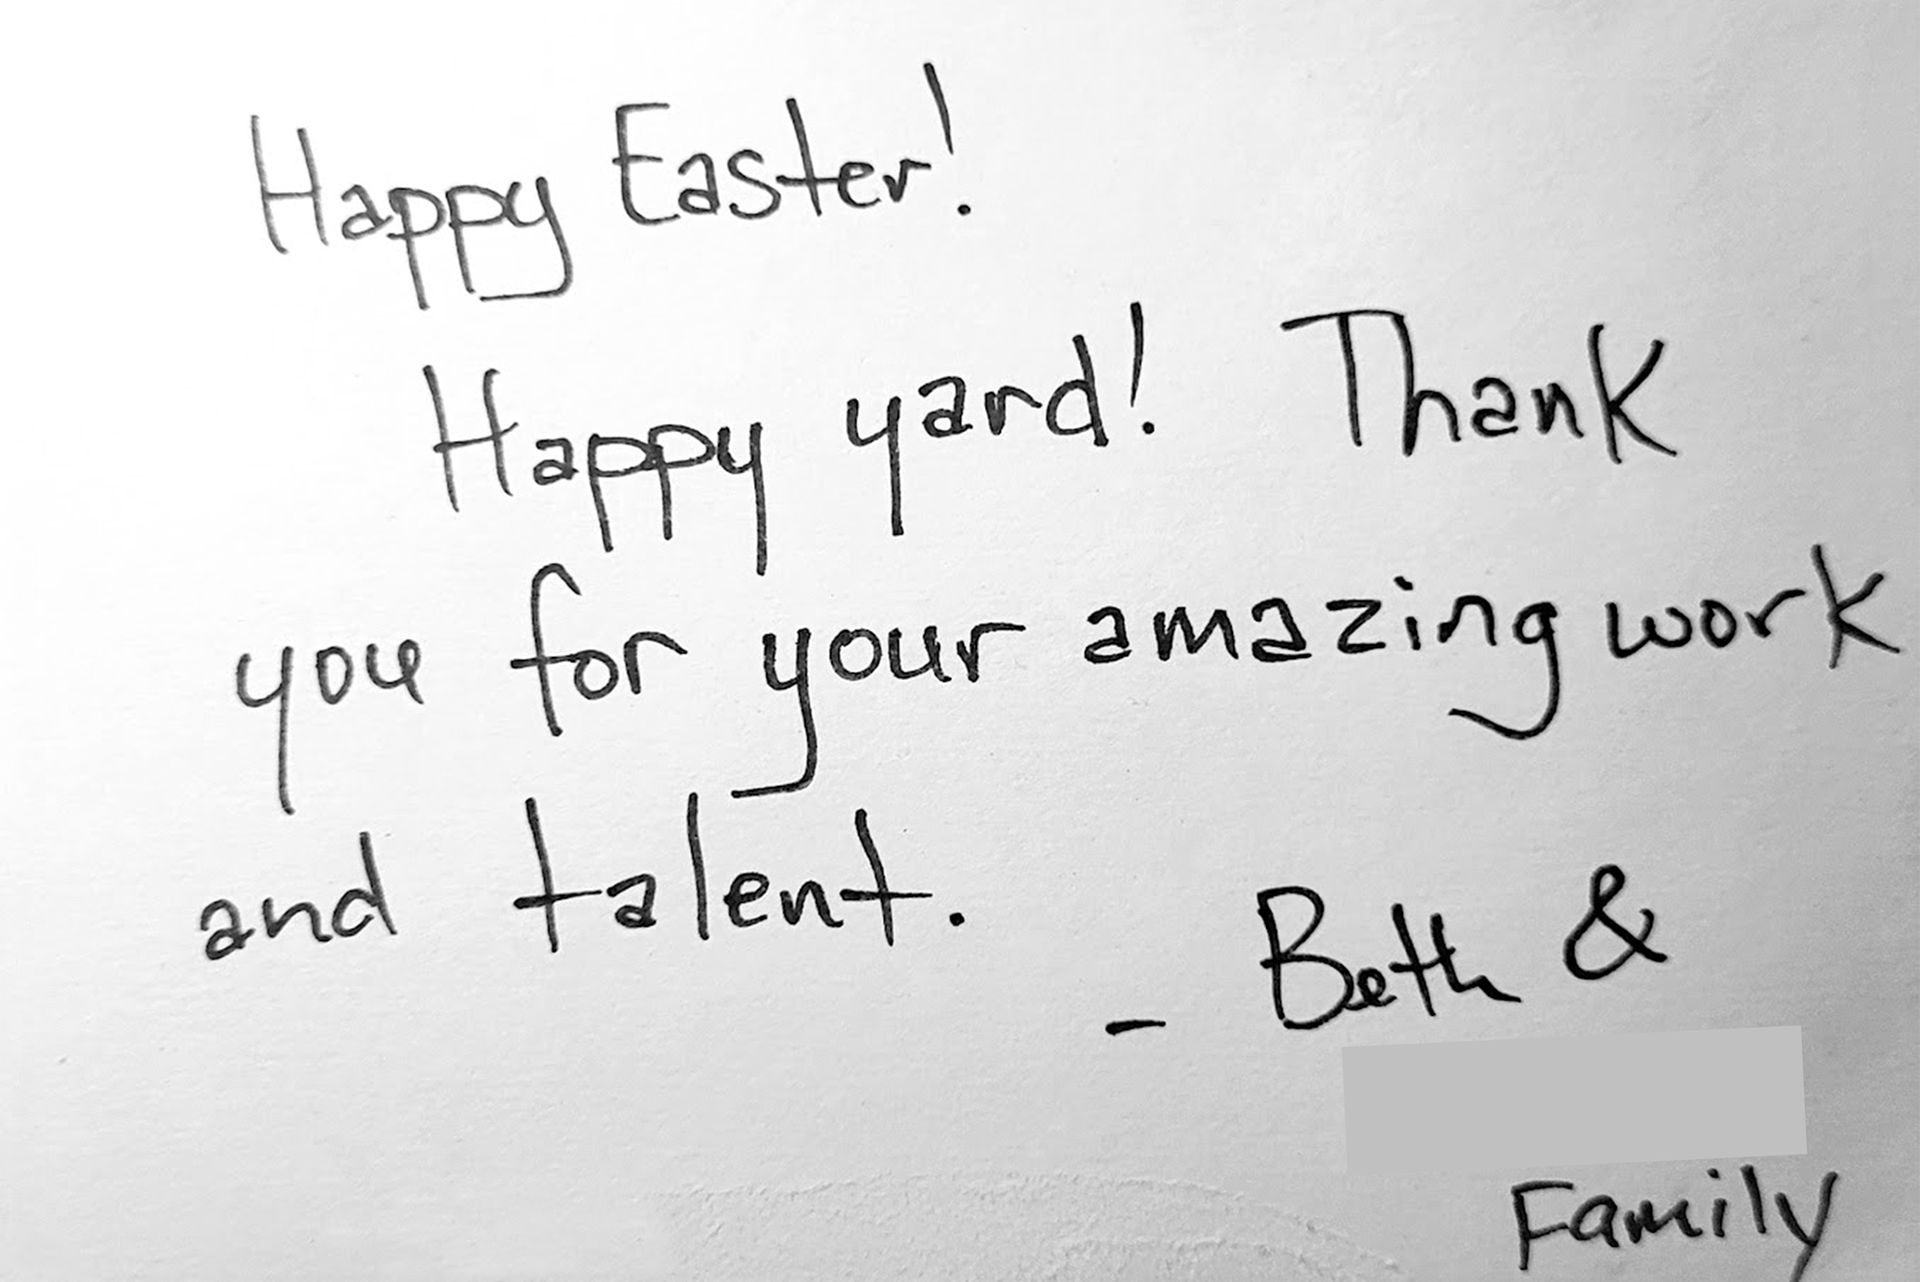 Happy Easter!
Happy yard! Thank
you for your amazing work
and talent.
- Beth &
Family